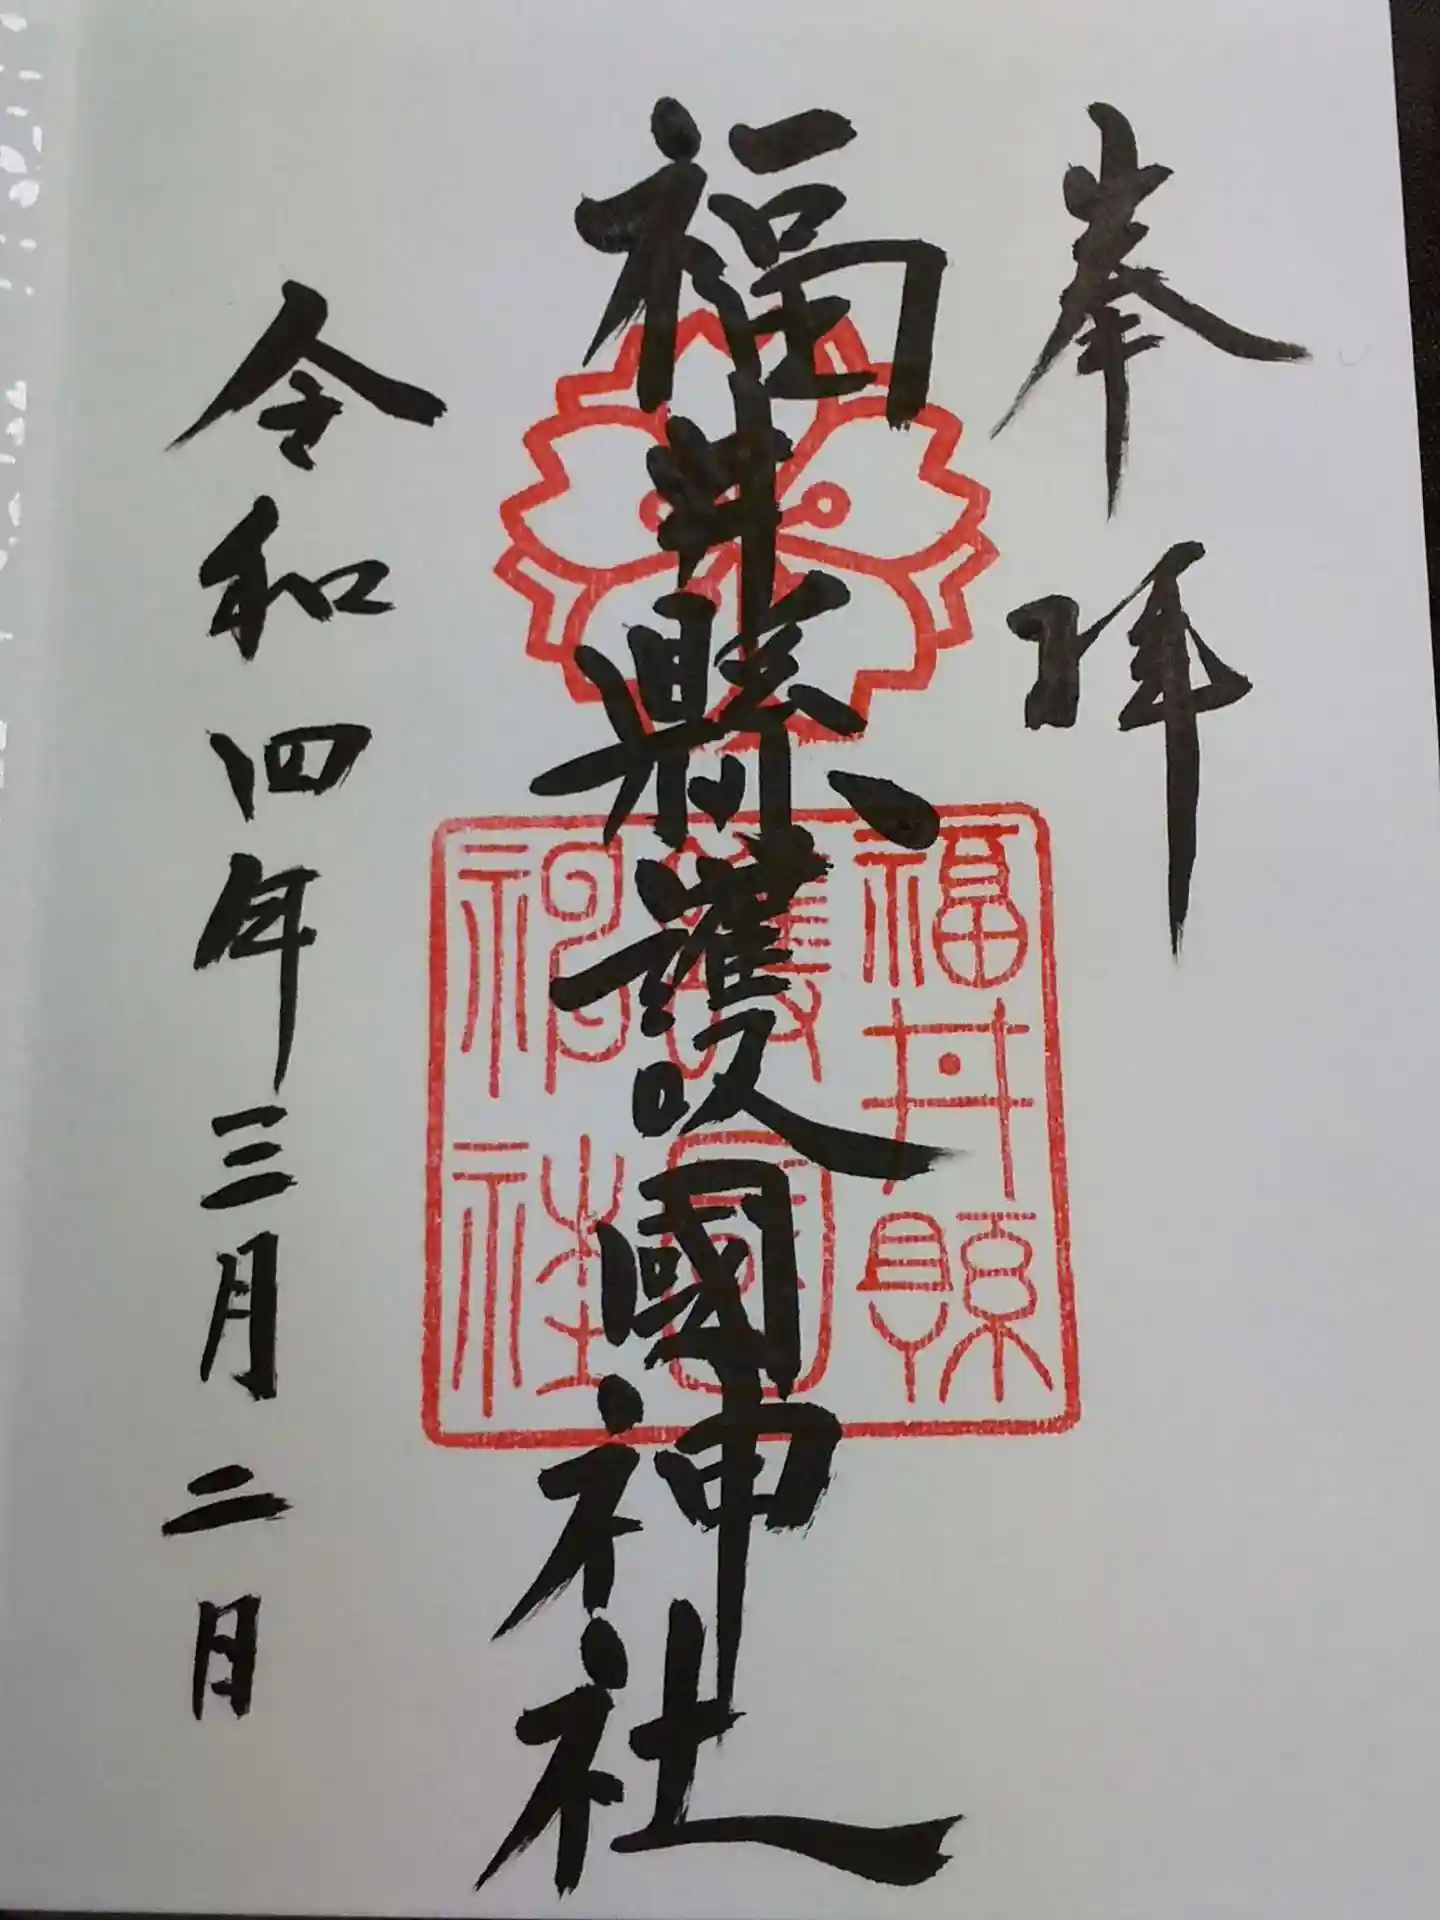 奉拝
福井縣護國神社
福井縣
護國
神社
令和四年三月二日